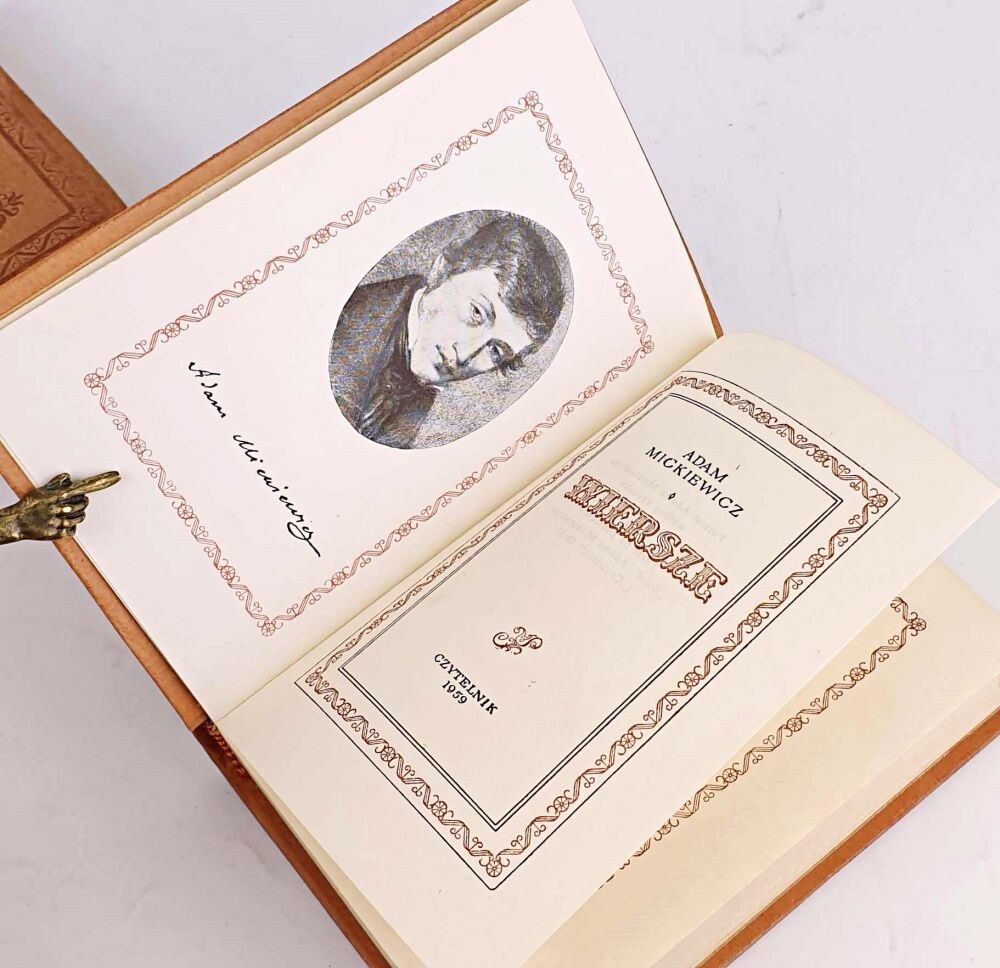 Adam Mickiewicz
ADAM
MICKIEWICZ
WIERSZE
CZYTELNIK
1959